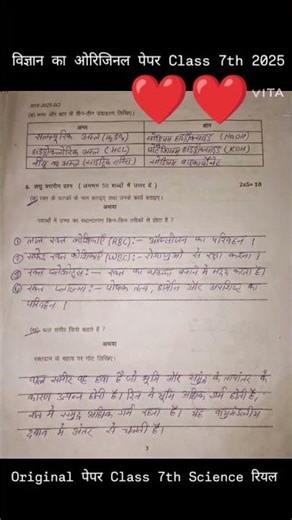 विज्ञान का ओरिजिनल पेपर Class 7th 2025
VITA
(ब) अम्ल और क्षार के तीन-तीन उदाहरण लिखिए।
अम्ल क्षार
सल्फ्यूरिक अम्ल (H₂SO₄) सोडियम हाइड्रॉक्साइड (NaOH)
हाइड्रोक्लोरिक अम्ल (HCL) पोटैशियम हाइड्रॉक्साइड (KOH)
नींबू का अम्ल (साइट्रिक एसिड)
6. लघु उत्तरीय प्रश्न (लगभग 50 शब्दों में उत्तर दें) 2x5=10
(अ) रक्त के घटकों के नाम बताइए तथा उनके कार्य बताइए।
अथवा
पदार्थों में उष्मा का स्थानान्तरण किन-किन तरीकों से होता है?
① लाल रक्त कोशिकाएँ (RBC):- ऑक्सीजन का परिवहन।
② सफेद रक्त कोशिकाएँ (WBC):- रोगाणुओं से रक्षा करना।
③ रक्त प्लेटलेट्स:- रक्त का थक्का बनाने में मदद करता है।
④ रक्त प्लाज्मा:- पोषक तत्व, हार्मोन और अपशिष्ट का
परिवहन।
(ब) थल समीर किसे कहते हैं?
अथवा
रक्तदान के महत्व पर नोट लिखिए।
थल समीर वह हवा है जो भूमि और समुद्र के तापांतर के
कारण उत्पन्न होती है। दिन में भूमि अधिक गर्म होती है,
रात में समुद्र अधिक गर्म रहता है। यह वायुमंडलीय
दबाव में अंतर से चलती है।
3
Original पेपर Class 7th Science रियल